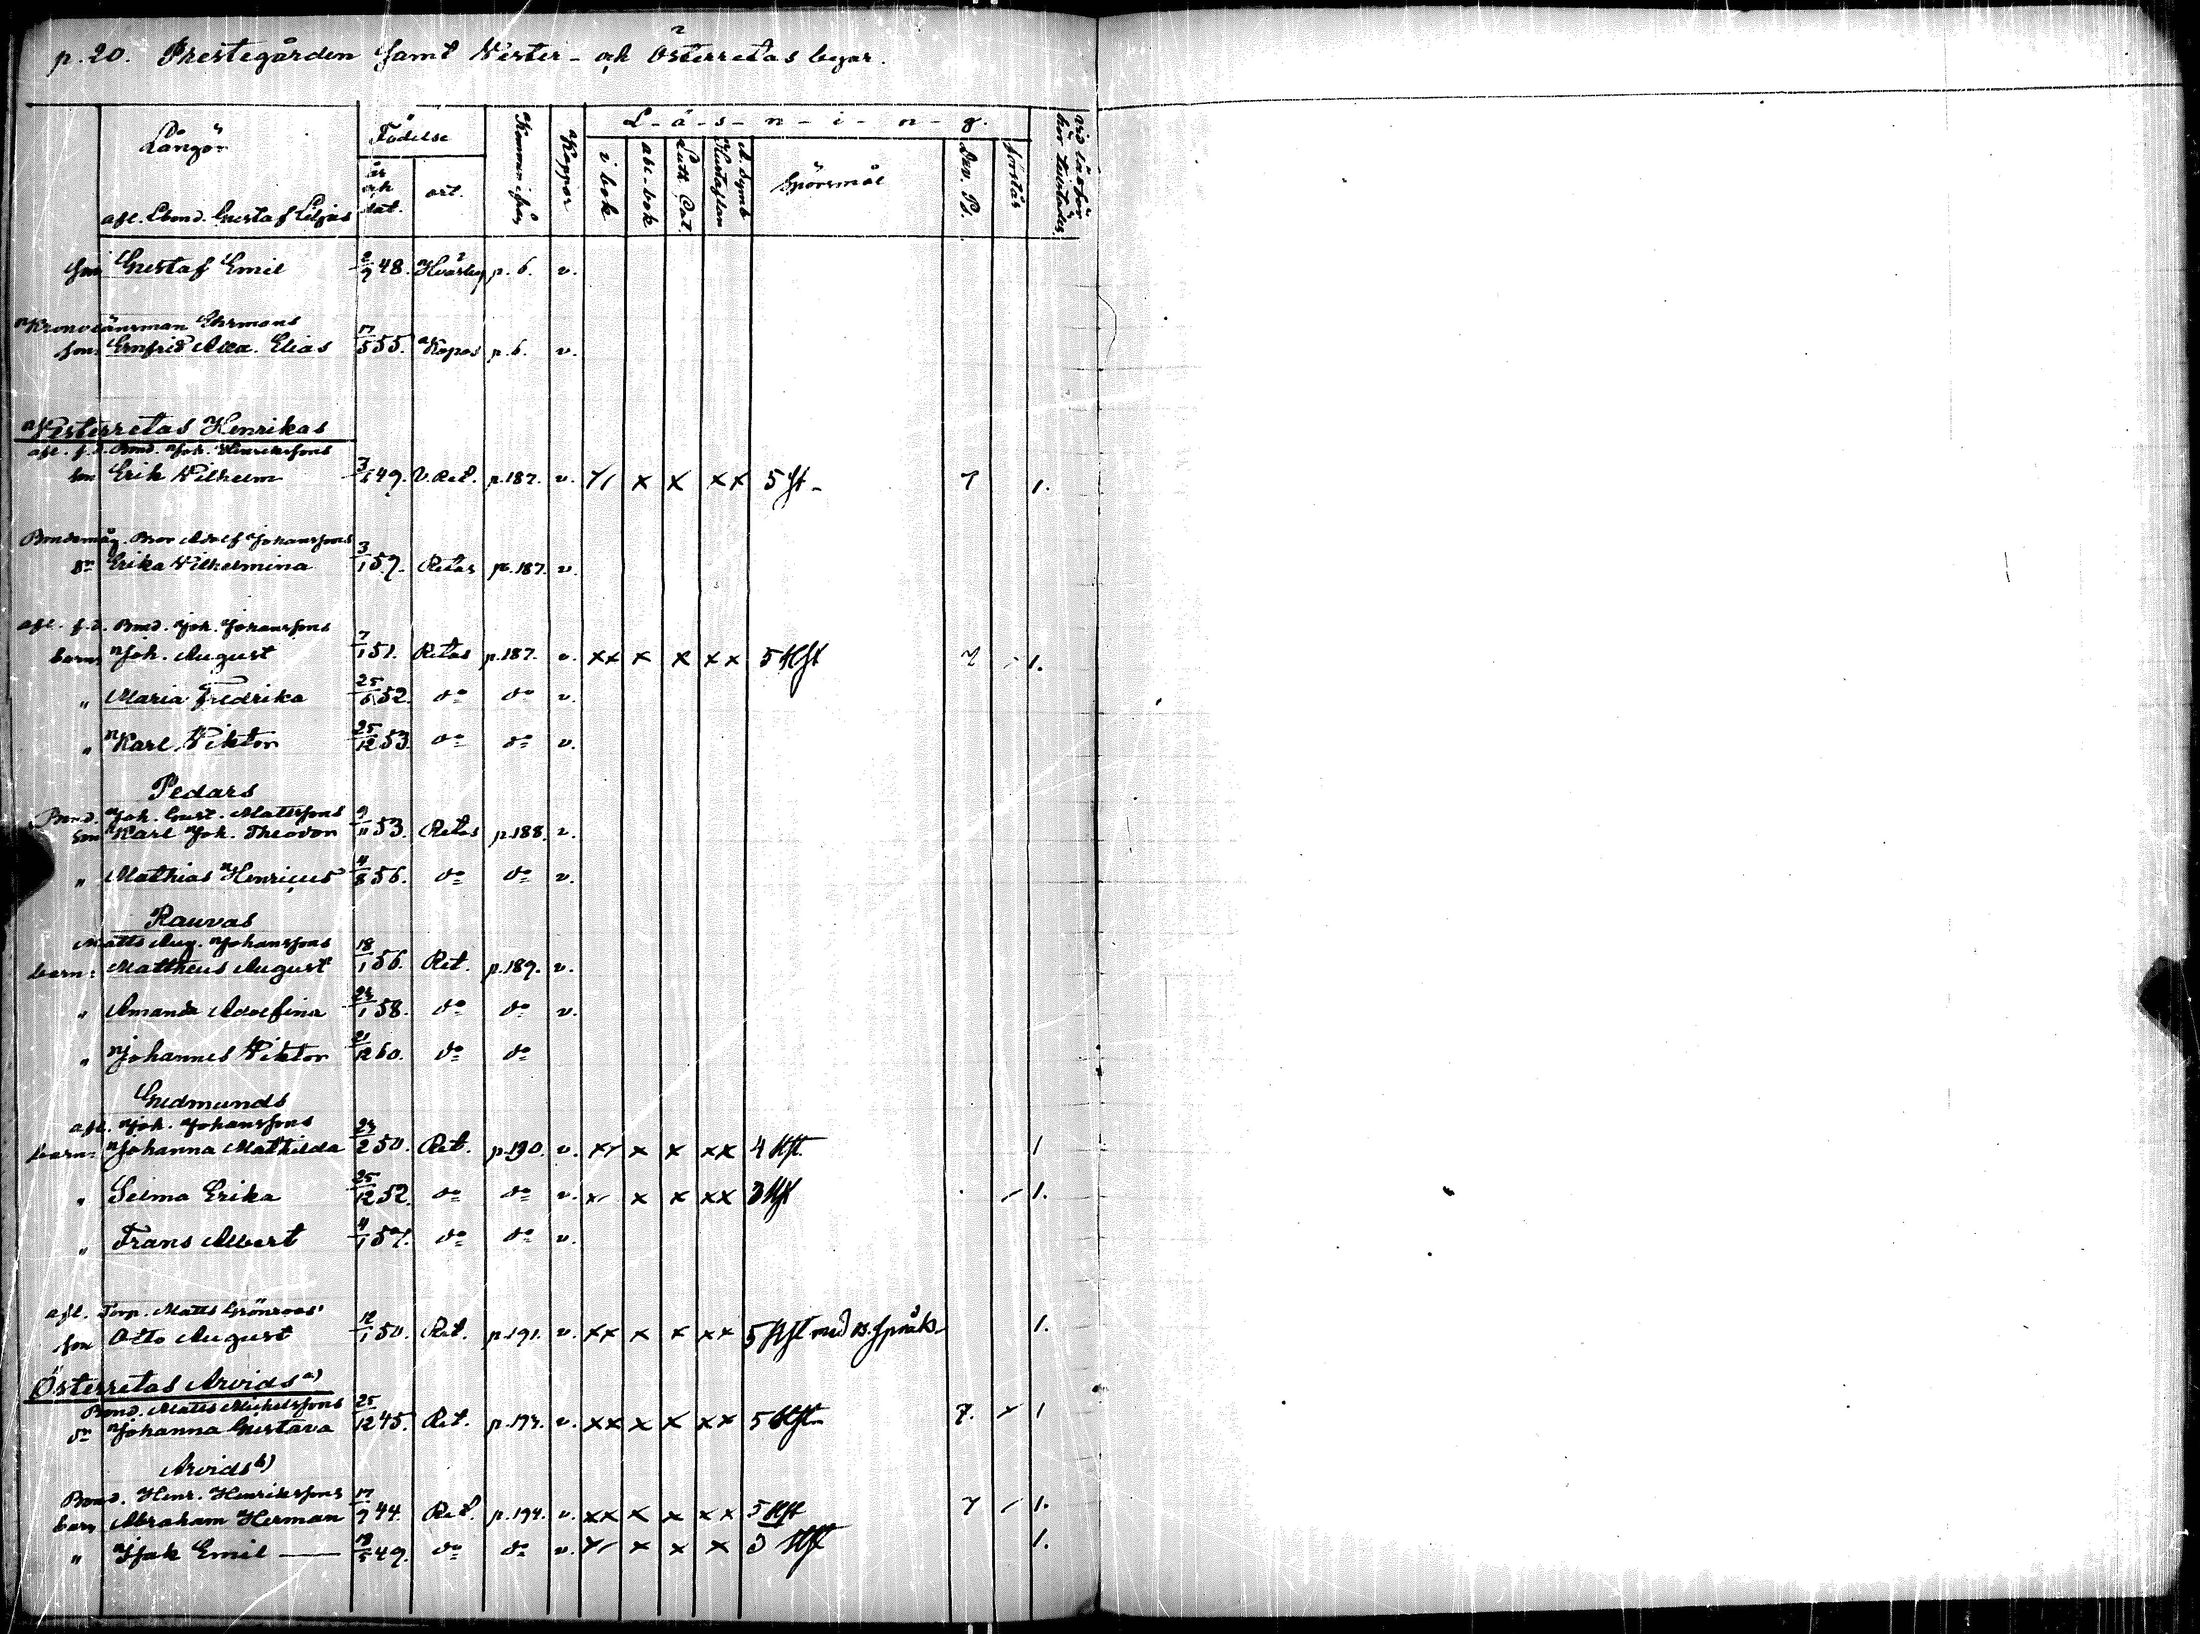 p. 20. Prestegården samt Vester- och Österretas byar.
Långör
Födelse
L-ä-s-n-i-n-g.
år och dat.
ort.
Koppor
i bok
abc-bok
Luth. Cat.
A. Symb. Hustaflan
Spörsmål
Dav. Ps.
förstår
afl. Lbond. Gustaf Liljas
son Gustaf Emil 2/9 48. p. 6. v.
Kronolänsman Ehrmans
son Ernfrid Alex. Elias 17/5 55. Kapas p. 6. v.
Vesterretas Henrikas
afl. f.d. Bond. Joh. Henrikssons
son Erik Wilhelm 49. V. Ret. p. 187. v. x x xx 5 ft 7 1.
Bondemåg. Bror Adolf Johanssons
dr Erika Wilhelmina 3/1 59. Retas p. 187. v.
afl. f.d. Bond. Joh. Johanssons
barn: Joh. August 7/1 51. Retas p. 187. v. xx x x xx 5 Hft 7 1.
" Maria Fredrika 25/6 52. do do v.
" Karl Viktor 25/12 53. do do v.
Pedars
Bond. Joh. Gust. Mattssons
son Karl Joh. Theodor 9/11 53. Retas p. 188. v.
" Mathias Henricus 4/8 56. do do v.
Rauvas
Matts Aug. Johanssons
barn: Mattheus August 18/1 56. Ret. p. 189. v.
" Amanda Adolfina 23/1 58. do do v.
" Johannes Viktor 21/12 60. do do
Gudmunds
afl. Joh. Johanssons
barn: Johanna Mathilda 23/2 50. Ret. p. 190. v. xx x x xx 4 Hft 1
" Selma Erika 25/12 52. do do v. x x xx 3 Hft 1.
" Frans Albert 4/1 57. do do v.
afl. Torp. Matts Grönroos'
son Otto August 12/1 50. Ret. p. 191. v. xx x x xx 5 Hft med B. språk 1.
Österretas Arvids a)
Bond. Matts Michelssons
dr Johanna Gustava 25/12 45. Ret. p. 194. v. xx x x xx 5 Hft 7. x 1
Arvids b)
Bond. Henr. Henrikssons
barn Abraham Herman 17/9 44. Ret. p. 194. v. xx x x xx 5 Hft 7 1.
" Isak Emil — 49. do do v. x x x 3 Hft 1.